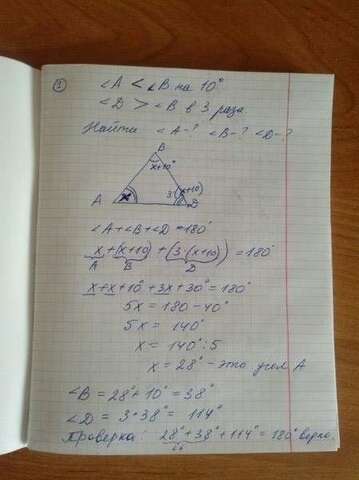 ①
∠A < ∠B на 10°
∠D > ∠B в 3 раза.
Найти ∠A-? ∠B-? ∠D-?
B
x+10°
3·(x+10)
A x D
∠A+∠B+∠D=180°
x+(x+10)+(3·(x+10))=180°
A B D
x+x+10°+3x+30°=180°
5x=180-40°
5x=140°
x=140°:5
x=28°-это угол A
∠B=28°+10°=38°
∠D=3·38°=114°
Проверка: 28°+38°+114°=180° верно.
66